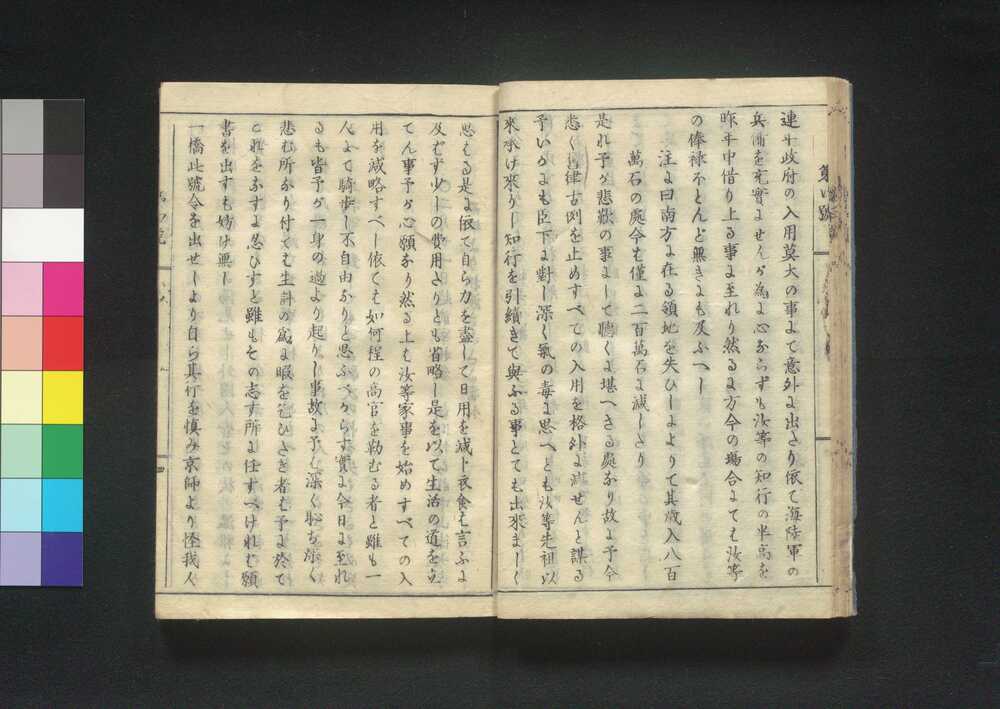 連年政府の入用莫大の事よて意外ょ出さり依て海陸軍の
兵備を充實ょせんが為ょ心ならずも汝等の知行の半高を
昨年中借り上る事ょ至れり然るょ方今の場合ょても汝等
の俸祿不とんど無きょも及ふへし
注ょ曰南方ょ在る領地を失ひしょよりて其歳入八百
萬石の處今も僅ょ二百萬石ょ減しさり
是れ予が悲歎の事ょして聽くょ堪へさる處なり故ょ予今
悉く舊律古例を止めすべての入用を格外ょ減せんと謀る
予いかょも臣下ょ對し深く氣の毒ょ思へとも汝等先祖以
來承け來りし知行を引續きて與ふる事とても出來ましく
思はる是ょ依て自ら力を盡して日用を減ト衣食も言ふょ
及むず少しの費用さりとも省略し是を以て生活の道を立
てん事予が心願なり然る上も汝等家事を始めすべての入
用を減略すべし依ても如何程の高官を勤むる者と雖も一
人ょて騎歩し不自由なりと思ふべからす實ょ今日ょ至れ
るも皆予が一身の過より起りし事故ょ予も深く恥ち痛く
悲む所なり付ても生計の爲ょ暇を乞ひさき者も予ょ於て
これをなすょ忍ひすと雖もその志す所ょ任すべけれむ願
書を出すも妨け無し
一橋此號令を出せしより自ら其行を慎み京師より怪我人
第四號
四